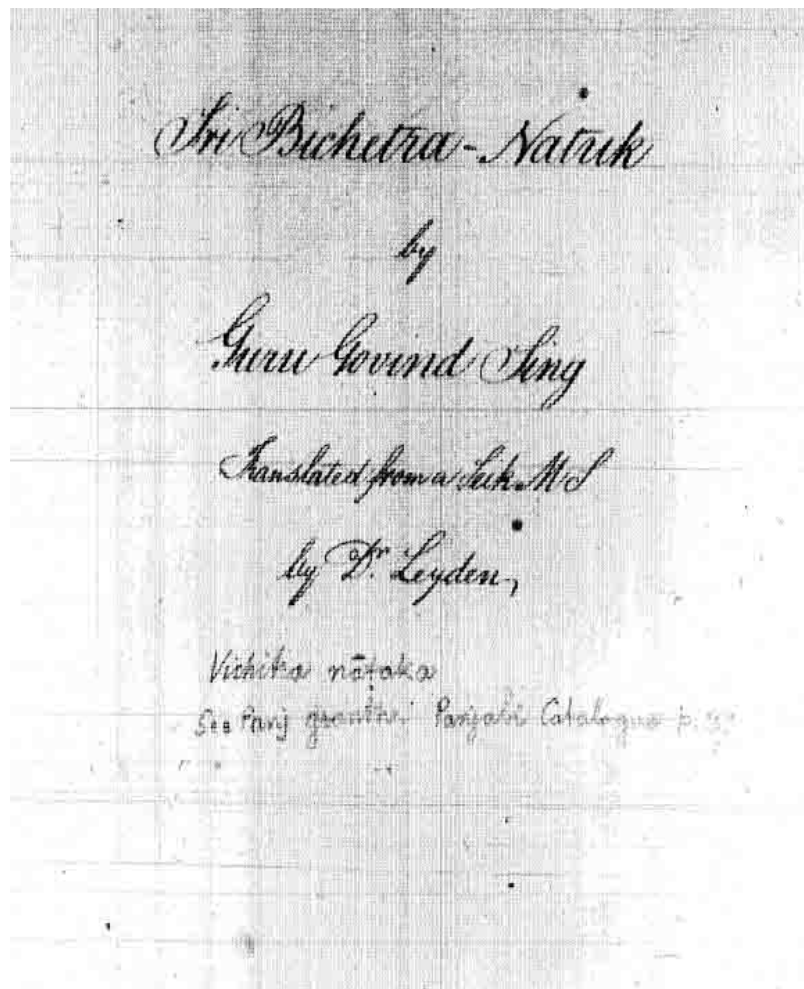 Sri Bichetra-Natuk
by
Guru Govind Sing
Translated from a Seik M S
by Dr. Leyden,
Vichitra nāṭaka
See Panj granthi Panjabi Catalogue p.